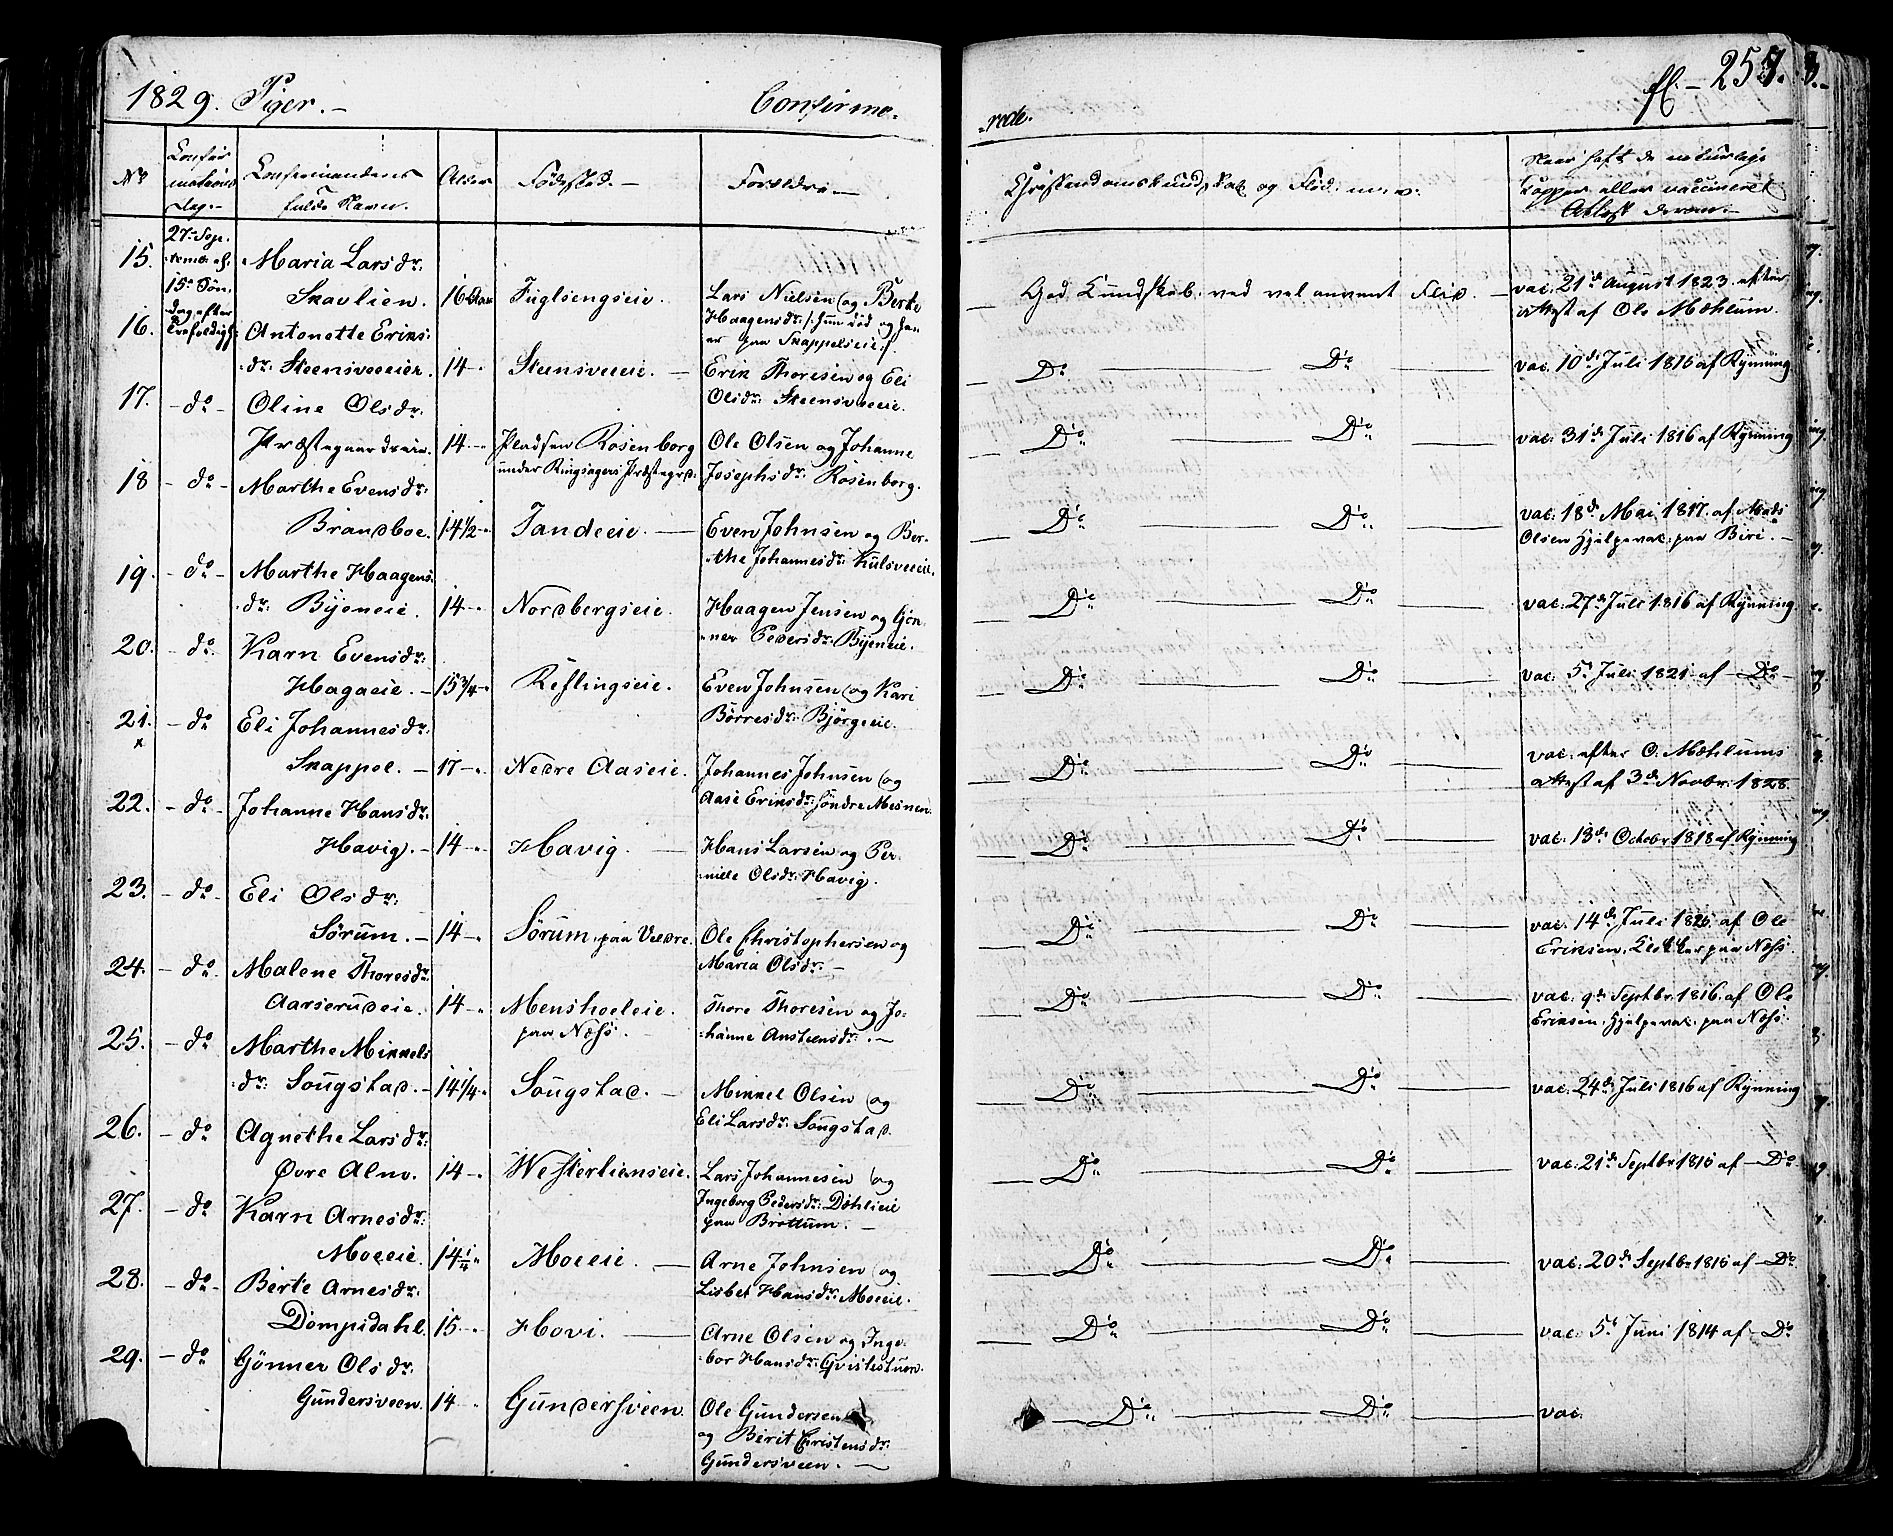 1829. Piger.- Confirme-
-rede. fl.- 257.
No Confirmations Dag.- Confirmandens fulde Navn. Alder Fødested.- Forældre.-
Christendomskundskab og Flid m. v. Naar haft de naturlige
Kopper eller vaccineret
Attest derom.-
15. 27 Septembr af. 15de Søndag efter Trefoldigh: Maria Larsdr:
Skavlien. 16 Aar Fuglsengseie. Lars Nielsen og Berte
Haagensdr: /: hun død og han
er paa Skappelseie :/.
God Kundskab ved vel anvent Flid. vac. 21d August 1823. efter
Attest af Ole Mæhlum.
16. Antonette Eriks:
:dr: Steensveeeier. 14 Steensveeeie. Erik Thoresen og Eli
Olsdr: Steensveeeie.
Do Do vac. 10d Juli 1816 af Rynning
17. do Oline Olsdr:
Præstegaardseie. 14 Pladsen Rosenborg
under Ringsagers Præstegrd. Ole Olsen og Johanne
Josephsdr: Rosenborg.
Do Do vac. 31d Juli 1816 af Rynning
18 do Marthe Evensdr:
Brandboe. 14 1/2 Tandeeie. Even Johnsen og Ber-
-the Johannesdr: Kulsveeie.
Do Do vac. 18d Mai 1817. af Mads
Olsen Hjelpevac: paa Biri.
19. do Marthe Haagens:
:dr: Bijeneie. 14 Nordbergseie. Haagen Jensen og Gøn-
-ner Pedersdr: Bijeneie.
Do Do vac. 27d Juli 1816 af Rynning
20. do Karn Evensdr:
Hagaeie. 15 3/4 Reflingseie. Even Johnsen og Kari
Børresdr: Bjørgeeie.
Do Do vac. 5t Juli 1821. af Do
21. x do Eli Johannesdr:
Skappel. 17 Nedre Aaseie. Johannes Johnsen og
Aase Eriksdr: Søndre Mesnen.
Do Do vac. efter O. Mæhlums
Attest af 3d Novbr. 1828.
22. do Johanne Hansdr:
Havig. 14 Havig. Hans Larsen og Per-
-nille Olsdr: Havig.
Do Do vac. 13d Octobr 1818 af Rynning
23. do Eli Olsdr:
Sørum. 14 Sørum, paa Veldre. Ole Christophersen og
Maria Olsdr:
Do Do vac. 14d Juli 1826. af Ole
Eriksen, Klokker paa Næss.
24. do Malene Thoresdr:
Aarserudeie. 14 Menshoeleie.
paa Næss. Thore Thoresen og Jo-
-hanne Anstensdr:
Do Do vac. 9d Septbr 1816. af Ole
Eriksen, Hjelpevac: paa Næss.
25. do Marthe Mikkels
:dr: Sougstad. 14 1/4 Sougstad. Mikkel Olsen og
Eli Larsdr: Sougstad.
Do Do vac. 24d Juli 1816 af Rynning
26. do Agnethe Larsdr:
Øvre Alm. 14 Westerlienseie. Lars Johannesen og
Ingeborg Pedersdr: Døhlieie
paa Brøttum.
Do Do vac. 21d Septbr 1815 af Do
27. do Karn Arnesdr:
Moeeie. 14 1/4 Moeeie. Arne Johnsen og
Lisbet Hansdr: Moeeie.
Do Do vac. 20d Septbr 1815 af Do
28. do Berte Arnesdr:
Dompidahl. 15 Hovi. Arne Olsen og Inge-
-bor Hansdr: Gvistetuen.
Do Do vac. 5t Juni 1814 af Do
29. do Gønner Olsdr:
Gundersveen. 14 Gundersveen. Ole Gundersen
og Birit Christensdr:
Gundersveen.
Do Do vac.